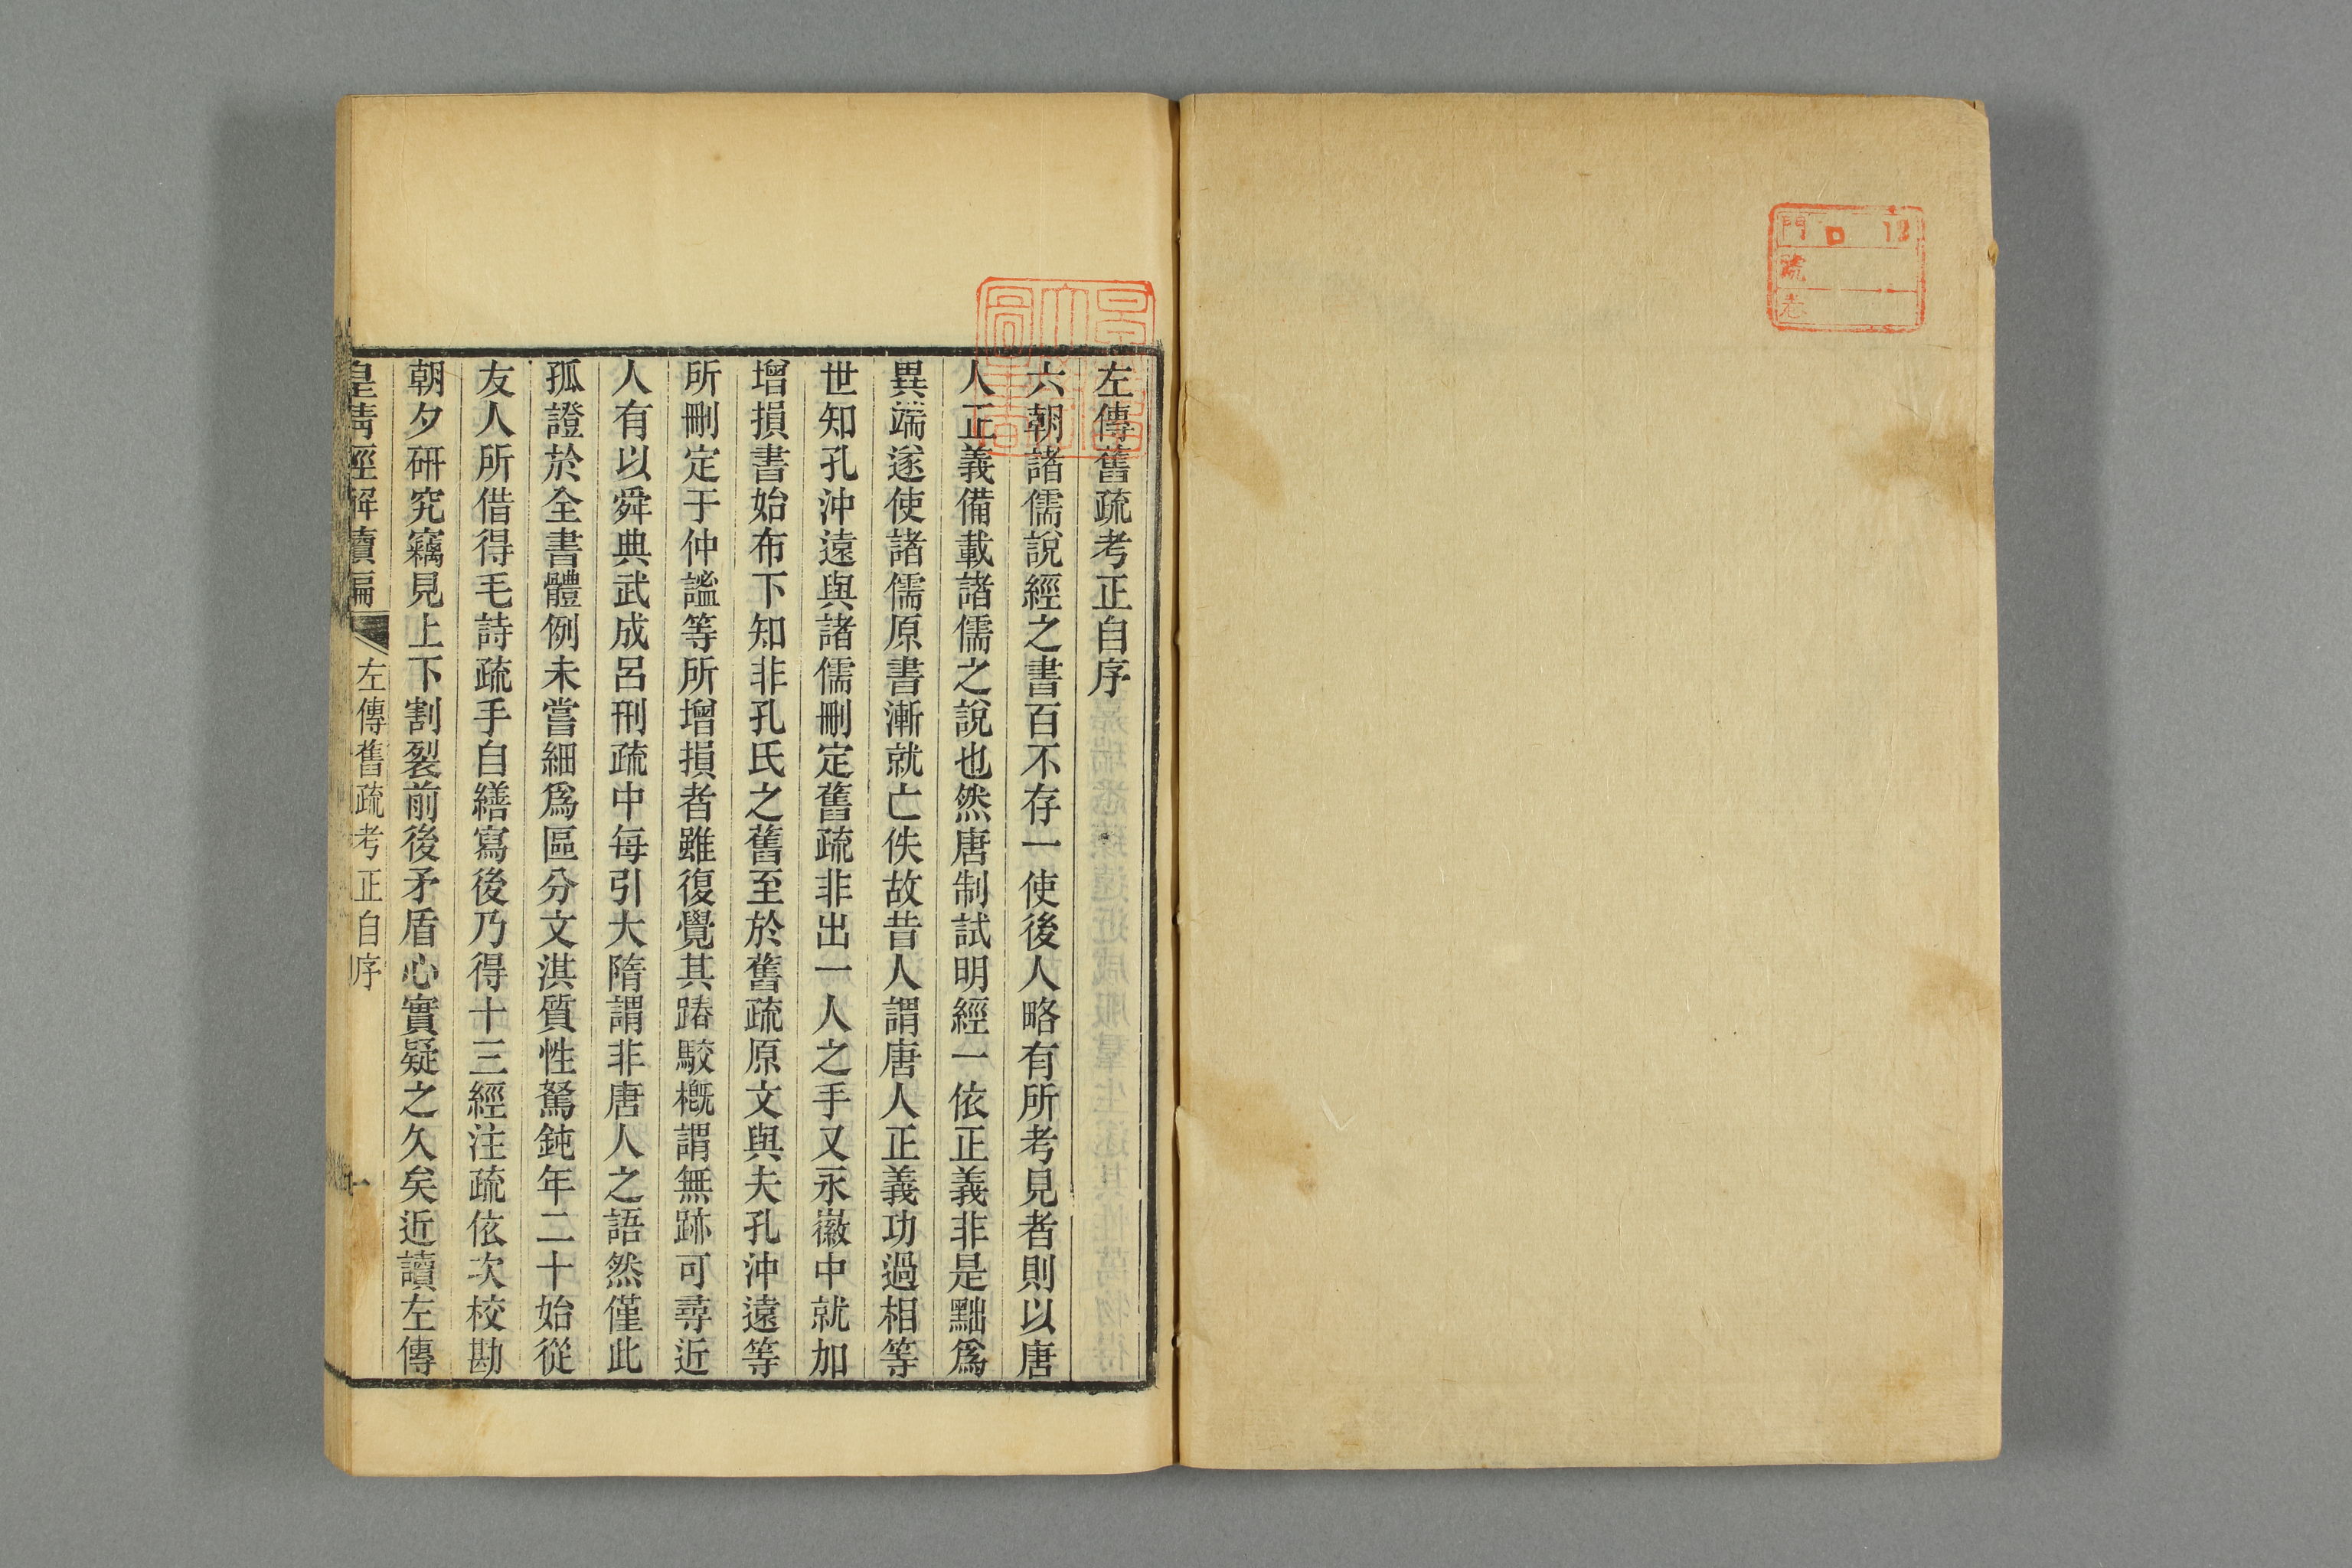 門 口 12
號
卷
左傳舊疏考正自序
六朝諸儒說經之書百不存一使後人略有所考見者則以唐
人正義備載諸儒之說也然唐制試明經一依正義非是黜爲
異端遂使諸儒原書漸就亡佚故昔人謂唐人正義功過相等
世知孔沖遠與諸儒刪定舊疏非出一人之手又永徽中就加
增損書始布下知非孔氏之舊至於舊疏原文與夫孔沖遠等
所刪定于仲謐等所增損者雖復覺其踳駮槪謂無跡可尋近
人有以舜典武成呂刑疏中每引大隋謂非唐人之語然僅此
孤證於全書體例未嘗細爲區分文淇質性駑鈍年二十始從
友人所借得毛詩疏手自繕寫後乃得十三經注疏依次校勘
朝夕研究竊見上下割裂前後矛盾心實疑之久矣近讀左傳
皇清經解續編 左傳舊疏考正自序 一